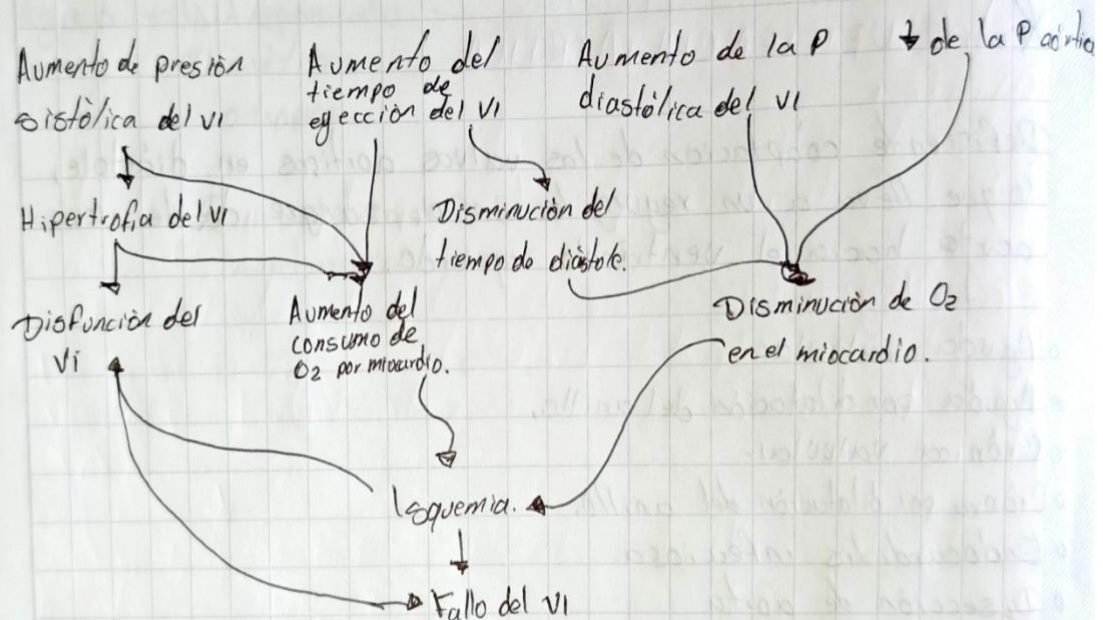 Aumento de presión
sistólica del VI
Aumento del
tiempo de
eyección del VI
Aumento de la P
diastólica del VI
↓ de la P aórtica
Hipertrofia del VI
Disminución del
tiempo de diástole.
Disfunción del
VI
Aumento del
consumo de
O2 por miocardio.
Disminución de O2
en el miocardio.
Isquemia.
Fallo del VI